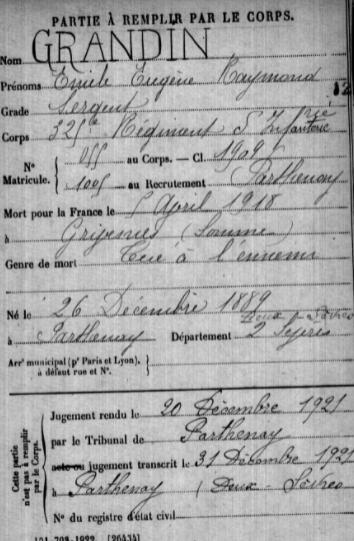 PARTIE À REMPLIR PAR LE CORPS.
Nom GRANDIN
Prénoms Emile Eugène Raymond
12
Grade Sergent
Corps 325e Régiment d'Infanterie
N° Matricule. { 055 au Corps. — Cl. 1909
1005 au Recrutement Parthenay
Mort pour la France le 5 April 1918
à Grivesnes (Somme)
Genre de mort Tué à l'ennemi
Né le 26 Décembre 1889
à Parthenay Département 2 Sèvres
Deux-Sèvres
Arrt municipal (pr Paris et Lyon), à défaut rue et N°.
Cette partie n'est pas à remplir par le Corps.
Jugement rendu le 20 Décembre 1921
par le Tribunal de Parthenay
acte ou jugement transcrit le 31 Décembre 1921
à Parthenay (Deux-Sèvres)
N° du registre d'état civil
101-708-1922. [26434]